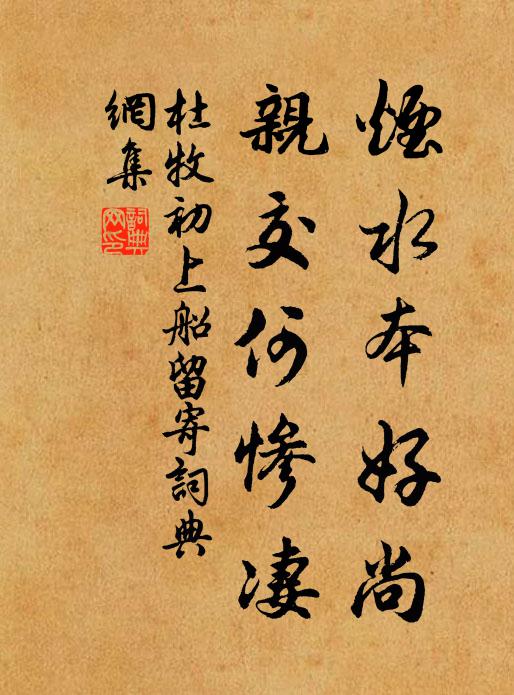 煙水本好尚
親交何慘凄
杜牧初上船留寄詞典
網集
詞典
网印